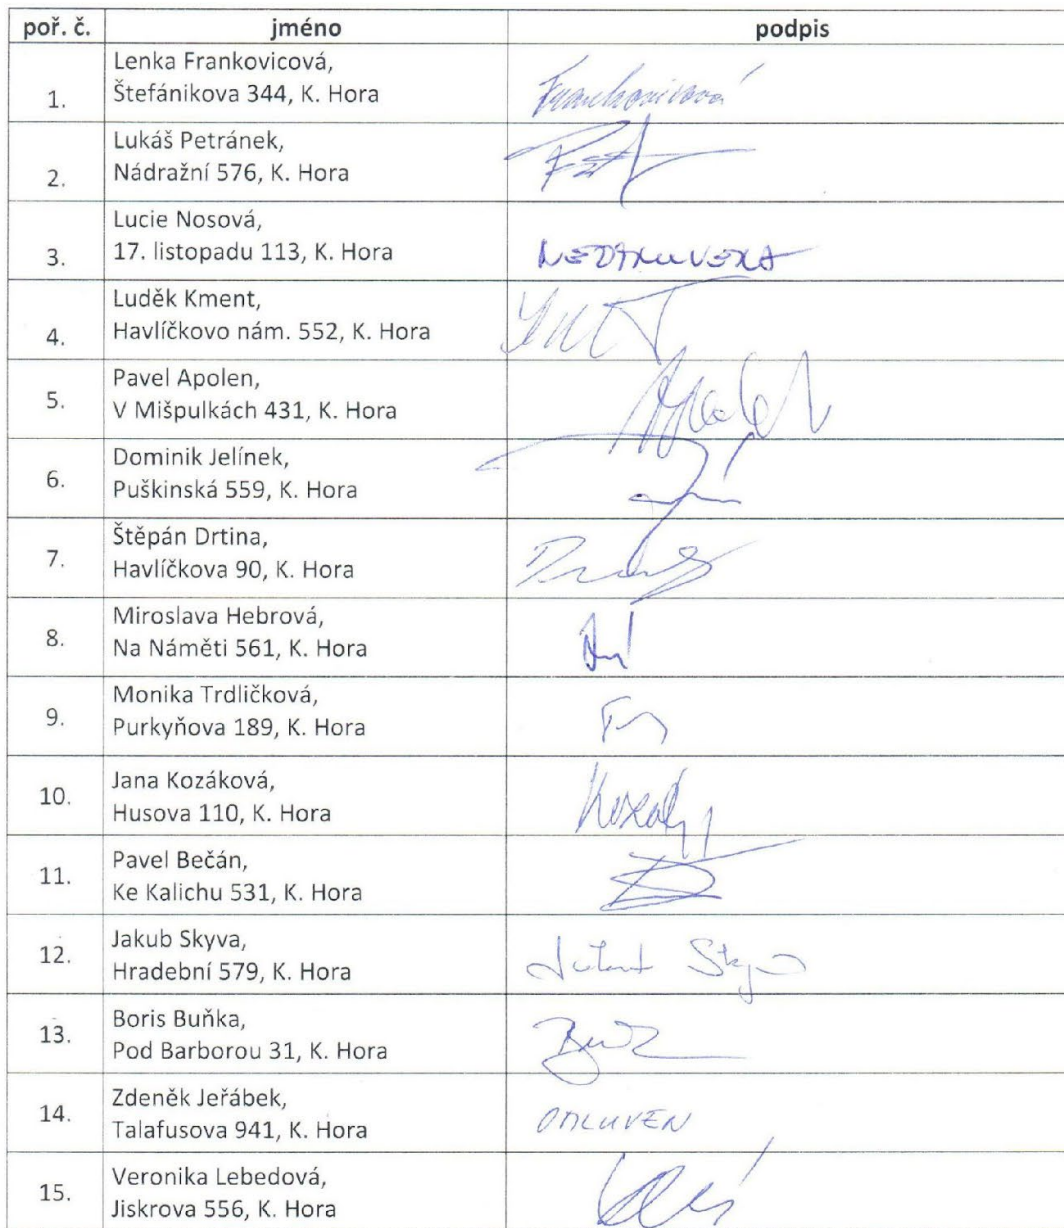 poř. č. jméno podpis
Lenka Frankovicová,
1. Štefánikova 344, K. Hora Frankovicová
Lukáš Petránek,
2. Nádražní 576, K. Hora
Lucie Nosová,
3. 17. listopadu 113, K. Hora
Luděk Kment,
4. Havlíčkovo nám. 552, K. Hora
Pavel Apolen,
5. V Mišpulkách 431, K. Hora
Dominik Jelínek,
6. Puškinská 559, K. Hora
Štěpán Drtina,
7. Havlíčkova 90, K. Hora
Miroslava Hebrová,
8. Na Náměti 561, K. Hora
Monika Trdličková,
9. Purkyňova 189, K. Hora
Jana Kozáková,
10. Husova 110, K. Hora
Pavel Bečán,
11. Ke Kalichu 531, K. Hora
Jakub Skyva,
12. Hradební 579, K. Hora
Boris Buňka,
13. Pod Barborou 31, K. Hora
Zdeněk Jeřábek,
14. Talafusova 941, K. Hora OMLUVEN
Veronika Lebedová,
15. Jiskrova 556, K. Hora